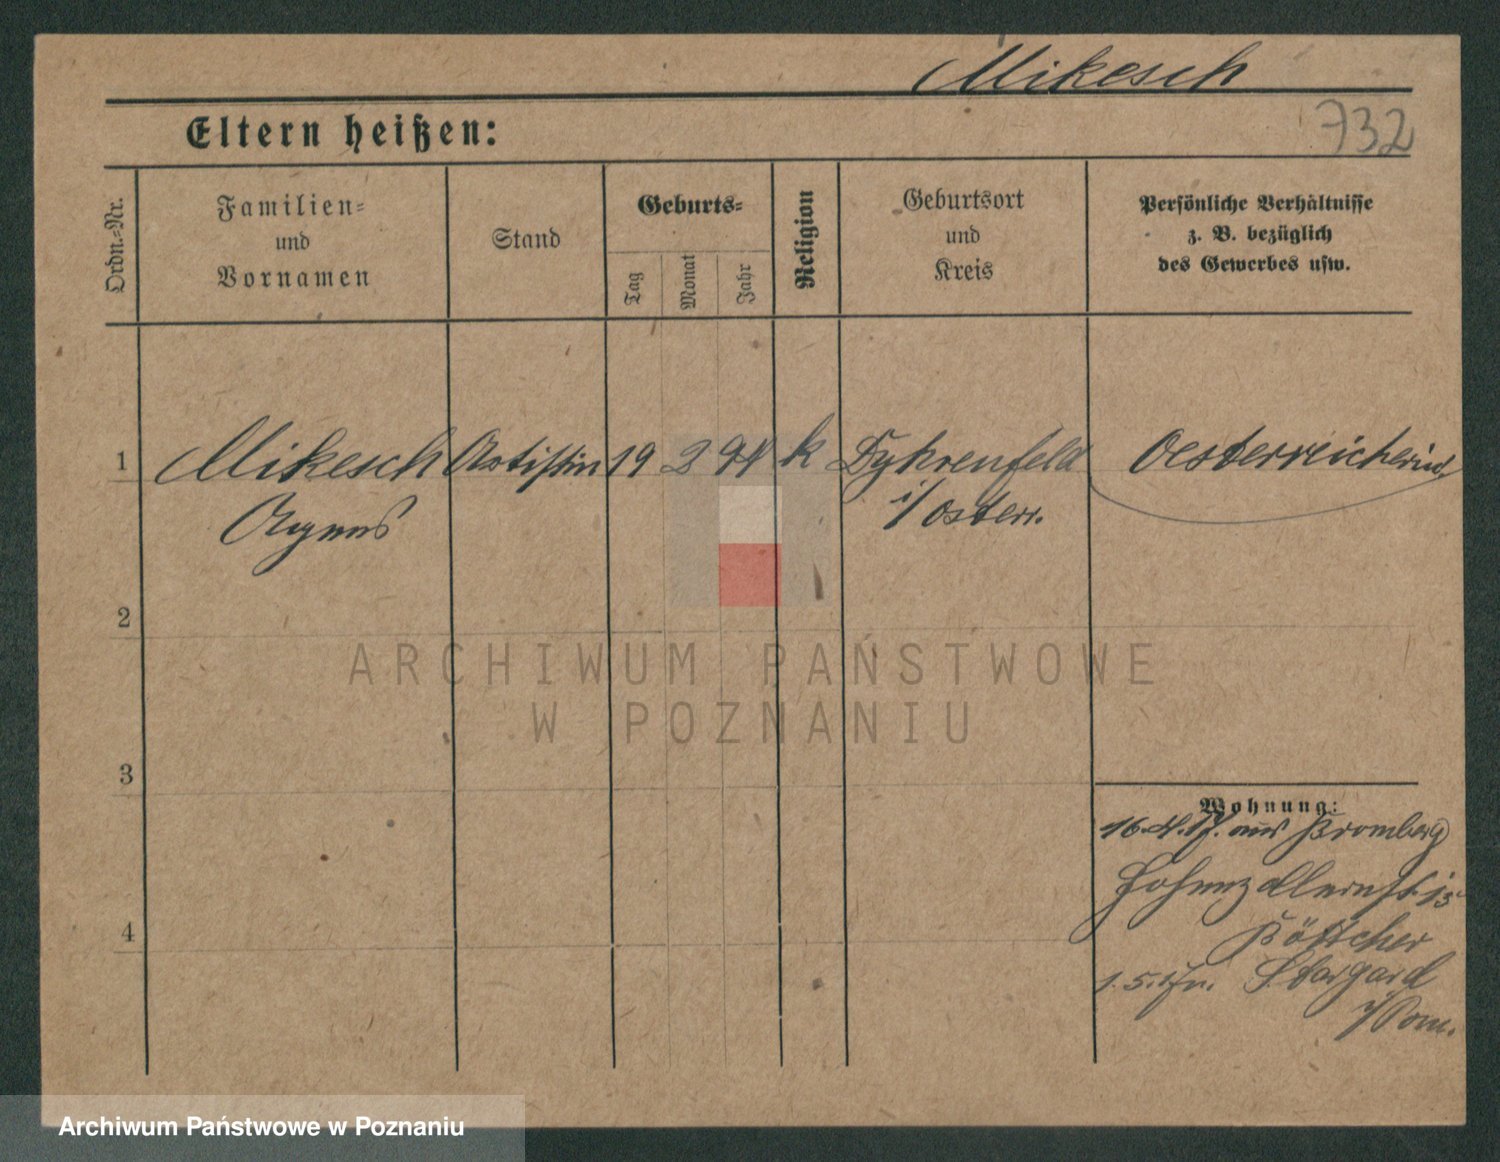 Mikesch
732
Eltern heißen:
Ordn.-Nr.
Familien-
und
Vornamen
Stand
Geburts-
Tag
Monat
Jahr
Religion
Geburtsort
und
Kreis
Persönliche Verhältnisse
z. B. bezüglich
des Gewerbes usw.
1 Mikesch Artistin 19 2 94 k Dyhrenfeld Oesterreicherin
Agnes i/Osterr.
2
3
4
Wohnung:
16.4.17. aus Bromberg
Hohenzollernst. 15
Böttcher
1.5.17 n. Stargard
i/Pom.
ARCHIWUM PAŃSTWOWE
W POZNANIU
Archiwum Państwowe w Poznaniu